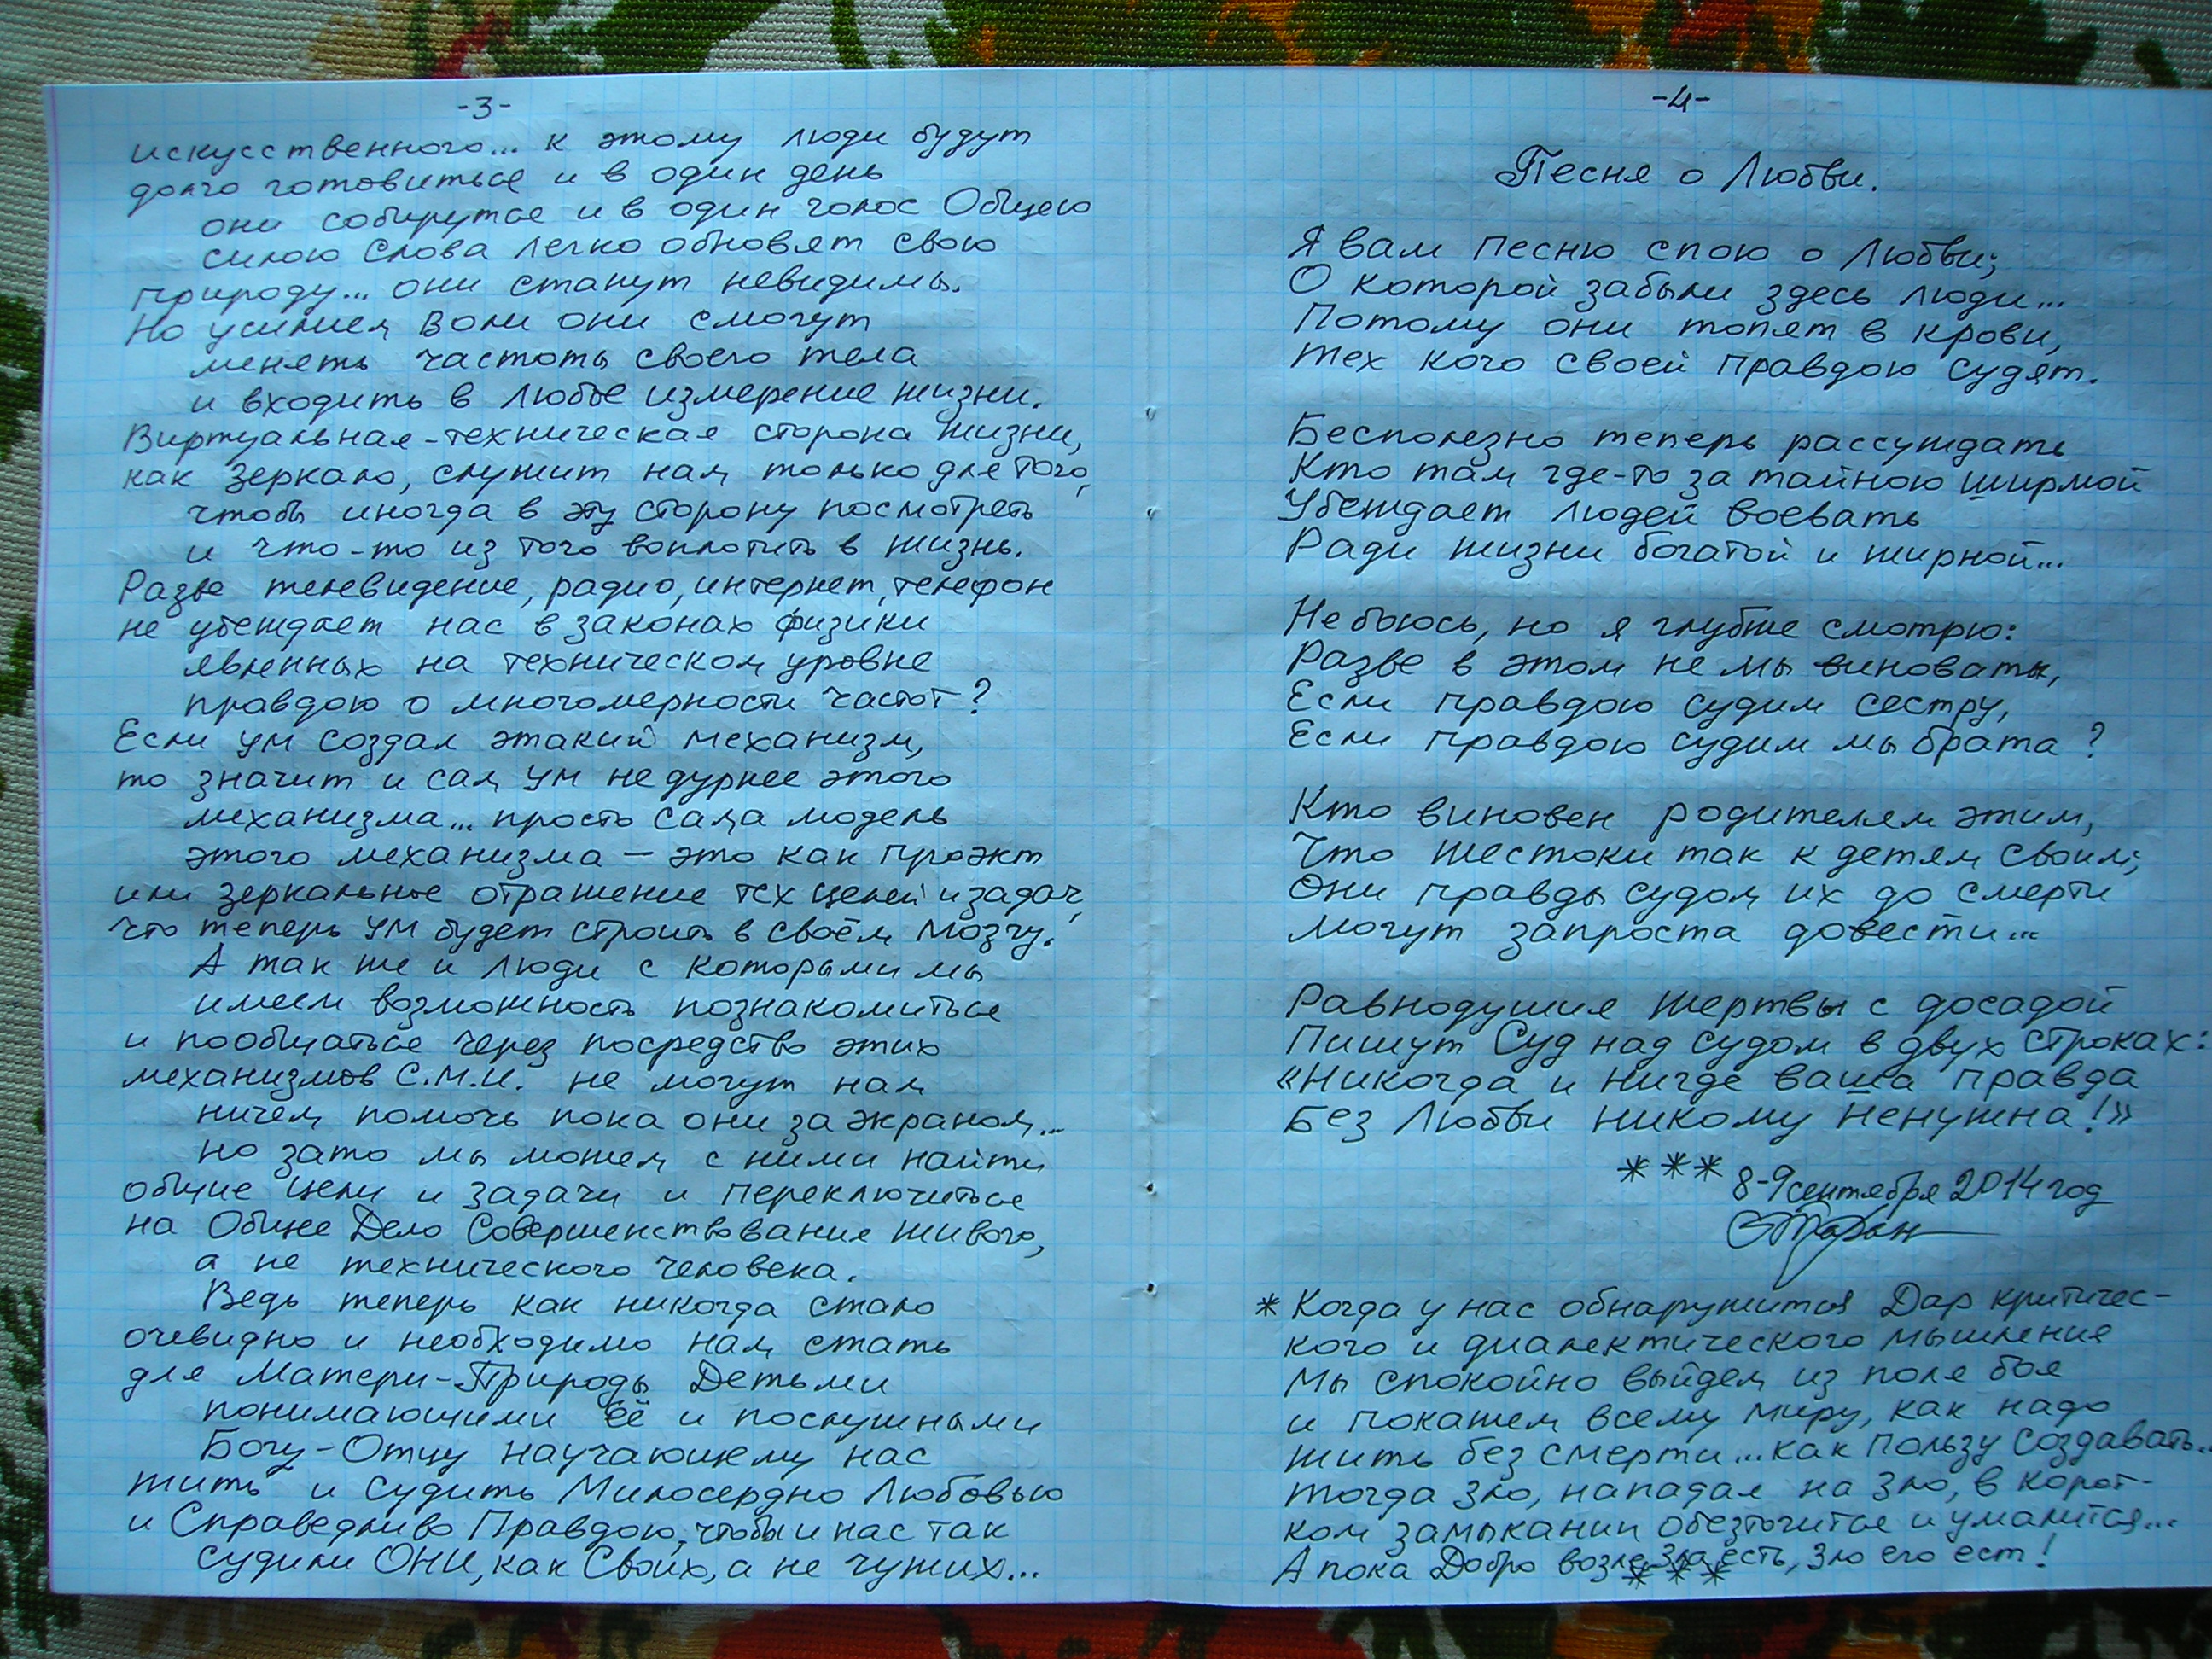 -3-
искусственного... к этому люди будут
долго готовиться и в один день
они соберутся и в один голос Общею
силою Слова легко обновят свою
природу... они станут невидимы.
Но усилием воли они смогут
менять частоты своего тела
и входить в любое измерение жизни.
Виртуальная-техническая сторона жизни,
как зеркало, служит нам только для того,
чтобы иногда в эту сторону посмотреть
и что-то из того воплотить в жизнь.
Разве телевидение, радио, интернет, телефон
не убеждает нас в законах физики
явленных на техническом уровне
правдою о многомерности частот?
Если ум создал этакий механизм,
то значит и сам ум не дурнее этого
механизма... просто сама модель
этого механизма — это как проэкт
или зеркальное отражение тех целей и задач,
что теперь ум будет строить в своём мозгу.
А так же и люди с которыми мы
имеем возможность познакомиться
и пообщаться через посредство этих
механизмов С.М.И. не могут нам
ничем помочь пока они за экраном...
но зато мы можем с ними найти
общие цели и задачи и переключиться
на Общее Дело Совершенствования живого,
а не технического человека.
Ведь теперь как никогда стало
очевидно и необходимо нам стать
для Матери-Природы Детьми
понимающими её и послушными
Богу-Отцу научающему нас
жить и судить Милосердно Любовью
и Справедливо Правдою, чтобы и нас так
судили ОНИ, как Своих, а не чужих...
-4-
Песня о Любви.
Я вам песню спою о Любви;
О которой забыли здесь люди...
Потому они топят в крови,
Тех кого своей правдою судят.
Бесполезно теперь рассуждать
Кто там где-то за тайною ширмой
Убеждает людей воевать
Ради жизни богатой и жирной...
Не боюсь, но я глубже смотрю:
Разве в этом не мы виноваты,
Если правдою судим сестру,
Если правдою судим мы брата?
Кто виновен родителям этим,
Что жестоки так к детям своим;
Они правды судом их до смерти
могут запроста довести...
Равнодушия жертвы с досадой
Пишут Суд над судом в двух строках:
«Никогда и нигде ваша правда
Без Любви никому ненужна!»
***
8-9 сентября 2014 год
* Когда у нас обнаружится Дар критичес-
кого и диалектического мышления
мы спокойно выйдем из поля боя
и покажем всему миру, как надо
жить без смерти... как пользу создавать...
тогда зло, нападая на зло, в корот-
ком замыкании обезточится и умалится...
А пока Добро возле Зла есть, зло его ест!
***